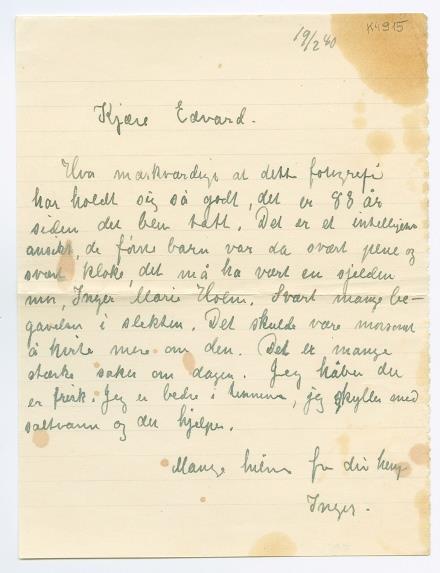 19/2 40
K4915
Kjære Edvard.
Hvor markværdigt at dette fotografi
har holdt sig så godt, det er 88 år
siden det blev tatt. Det er et intelligent
ansikt, de første barn var da svært pene og
svært kloke, det må ha vært en sjelden
mor, Inger Marie Holm. Svært mange be-
gavelser i slekten. Det skulde være morsomt
å høre mere om den. Det er mange
stærke saker om dagen. Jeg håber du
er frisk. Jeg er bedre i, jeg skyller med
saltvann og det hjelper.
Mange hilsner fra din heng.
Inger.